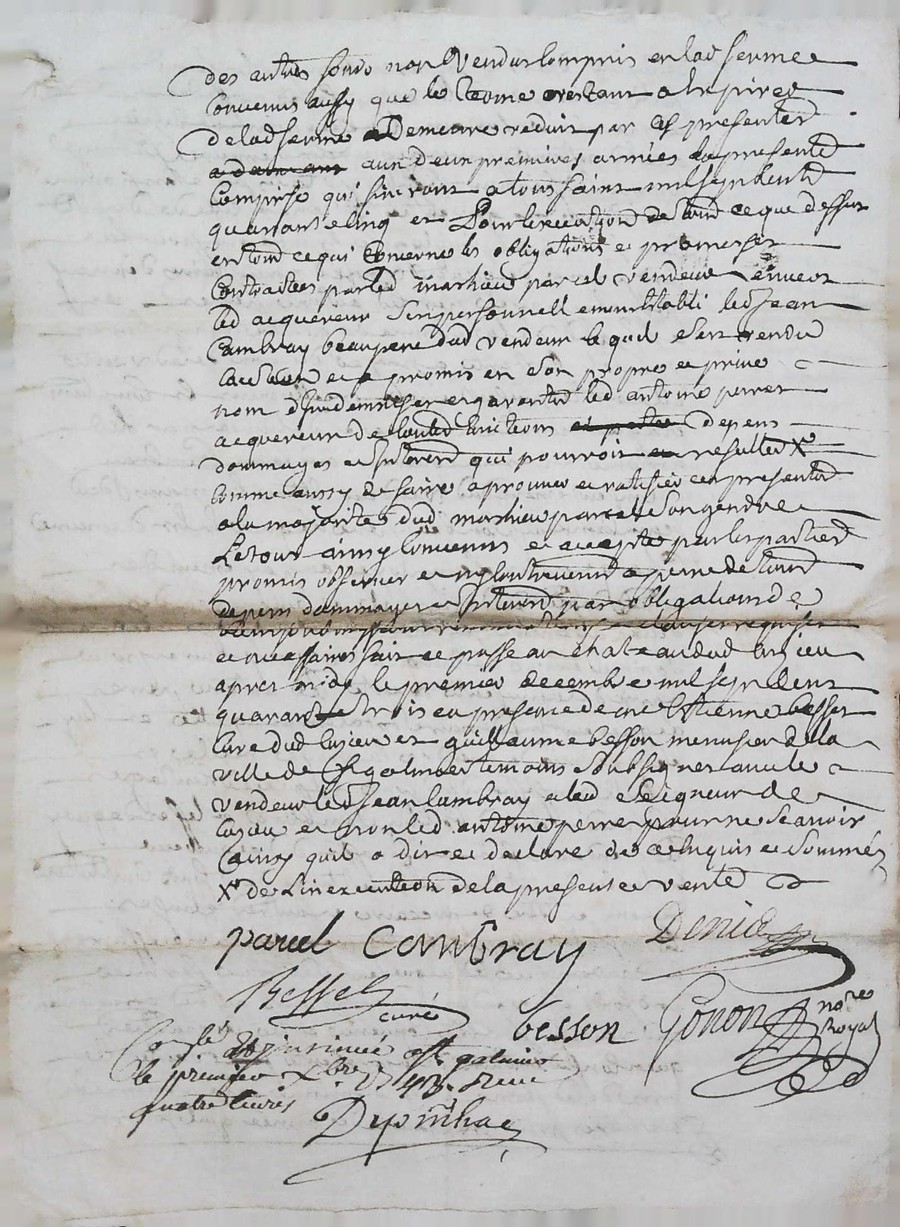 des autres fonds non vendus compris en lad ferme
convenus aussy que le terme restant a expirer
de lad ferme demeure reduit par ces presentes
aux deux premieres années la presente
comprise qui finiront a toussaint mil sept cents
quarante cinq et pour l'execution de tout ce que dessus
en tout ce qui concerne les obligations et promesses
contractées par led mathieu parcel vendeur envers
led acquereur s'est personnellement etabli led Jean
Cambray beaupere dud vendeur lequel s'est rendu
caution et a promis en son propre et privé
nom d'indemniser et garantir led antoine perret
acquereur de toutes evictions depens
dommages et interets qui pourroit resulter X
comme aussy de faire aprouver et ratifier ces presentes
a la majorité dud mathieu parcel son gendre
Le tout ainsy convenus et accepté par les parties
promis observer et ny contrevenir a peine de tous
depens dommages et interets par obligations de
clauses requises
et necessaires fait et passé au chateau dud Cuzieu
apres midy le premier decembre mil sept cent
quarante trois en presence de me Etienne besset
curé dud Cuzieu et guillaume besson menusier de la
ville de St galmier temoins soubsignes avec le
vendeur led Jean Cambray et led seigneur de
Cuzieu et non led antoine perret pour ne sçavoir
ainsy quil a dit et declaré de ce enquis et sommés
X de l'inexecution de la presente vente
parcel Cambray Denis
Besset curé
besson Gonon nore Royal
Conlé et insinué a St galmier
le premier Xbre 1743 Recu
quatre livres
Depinhac